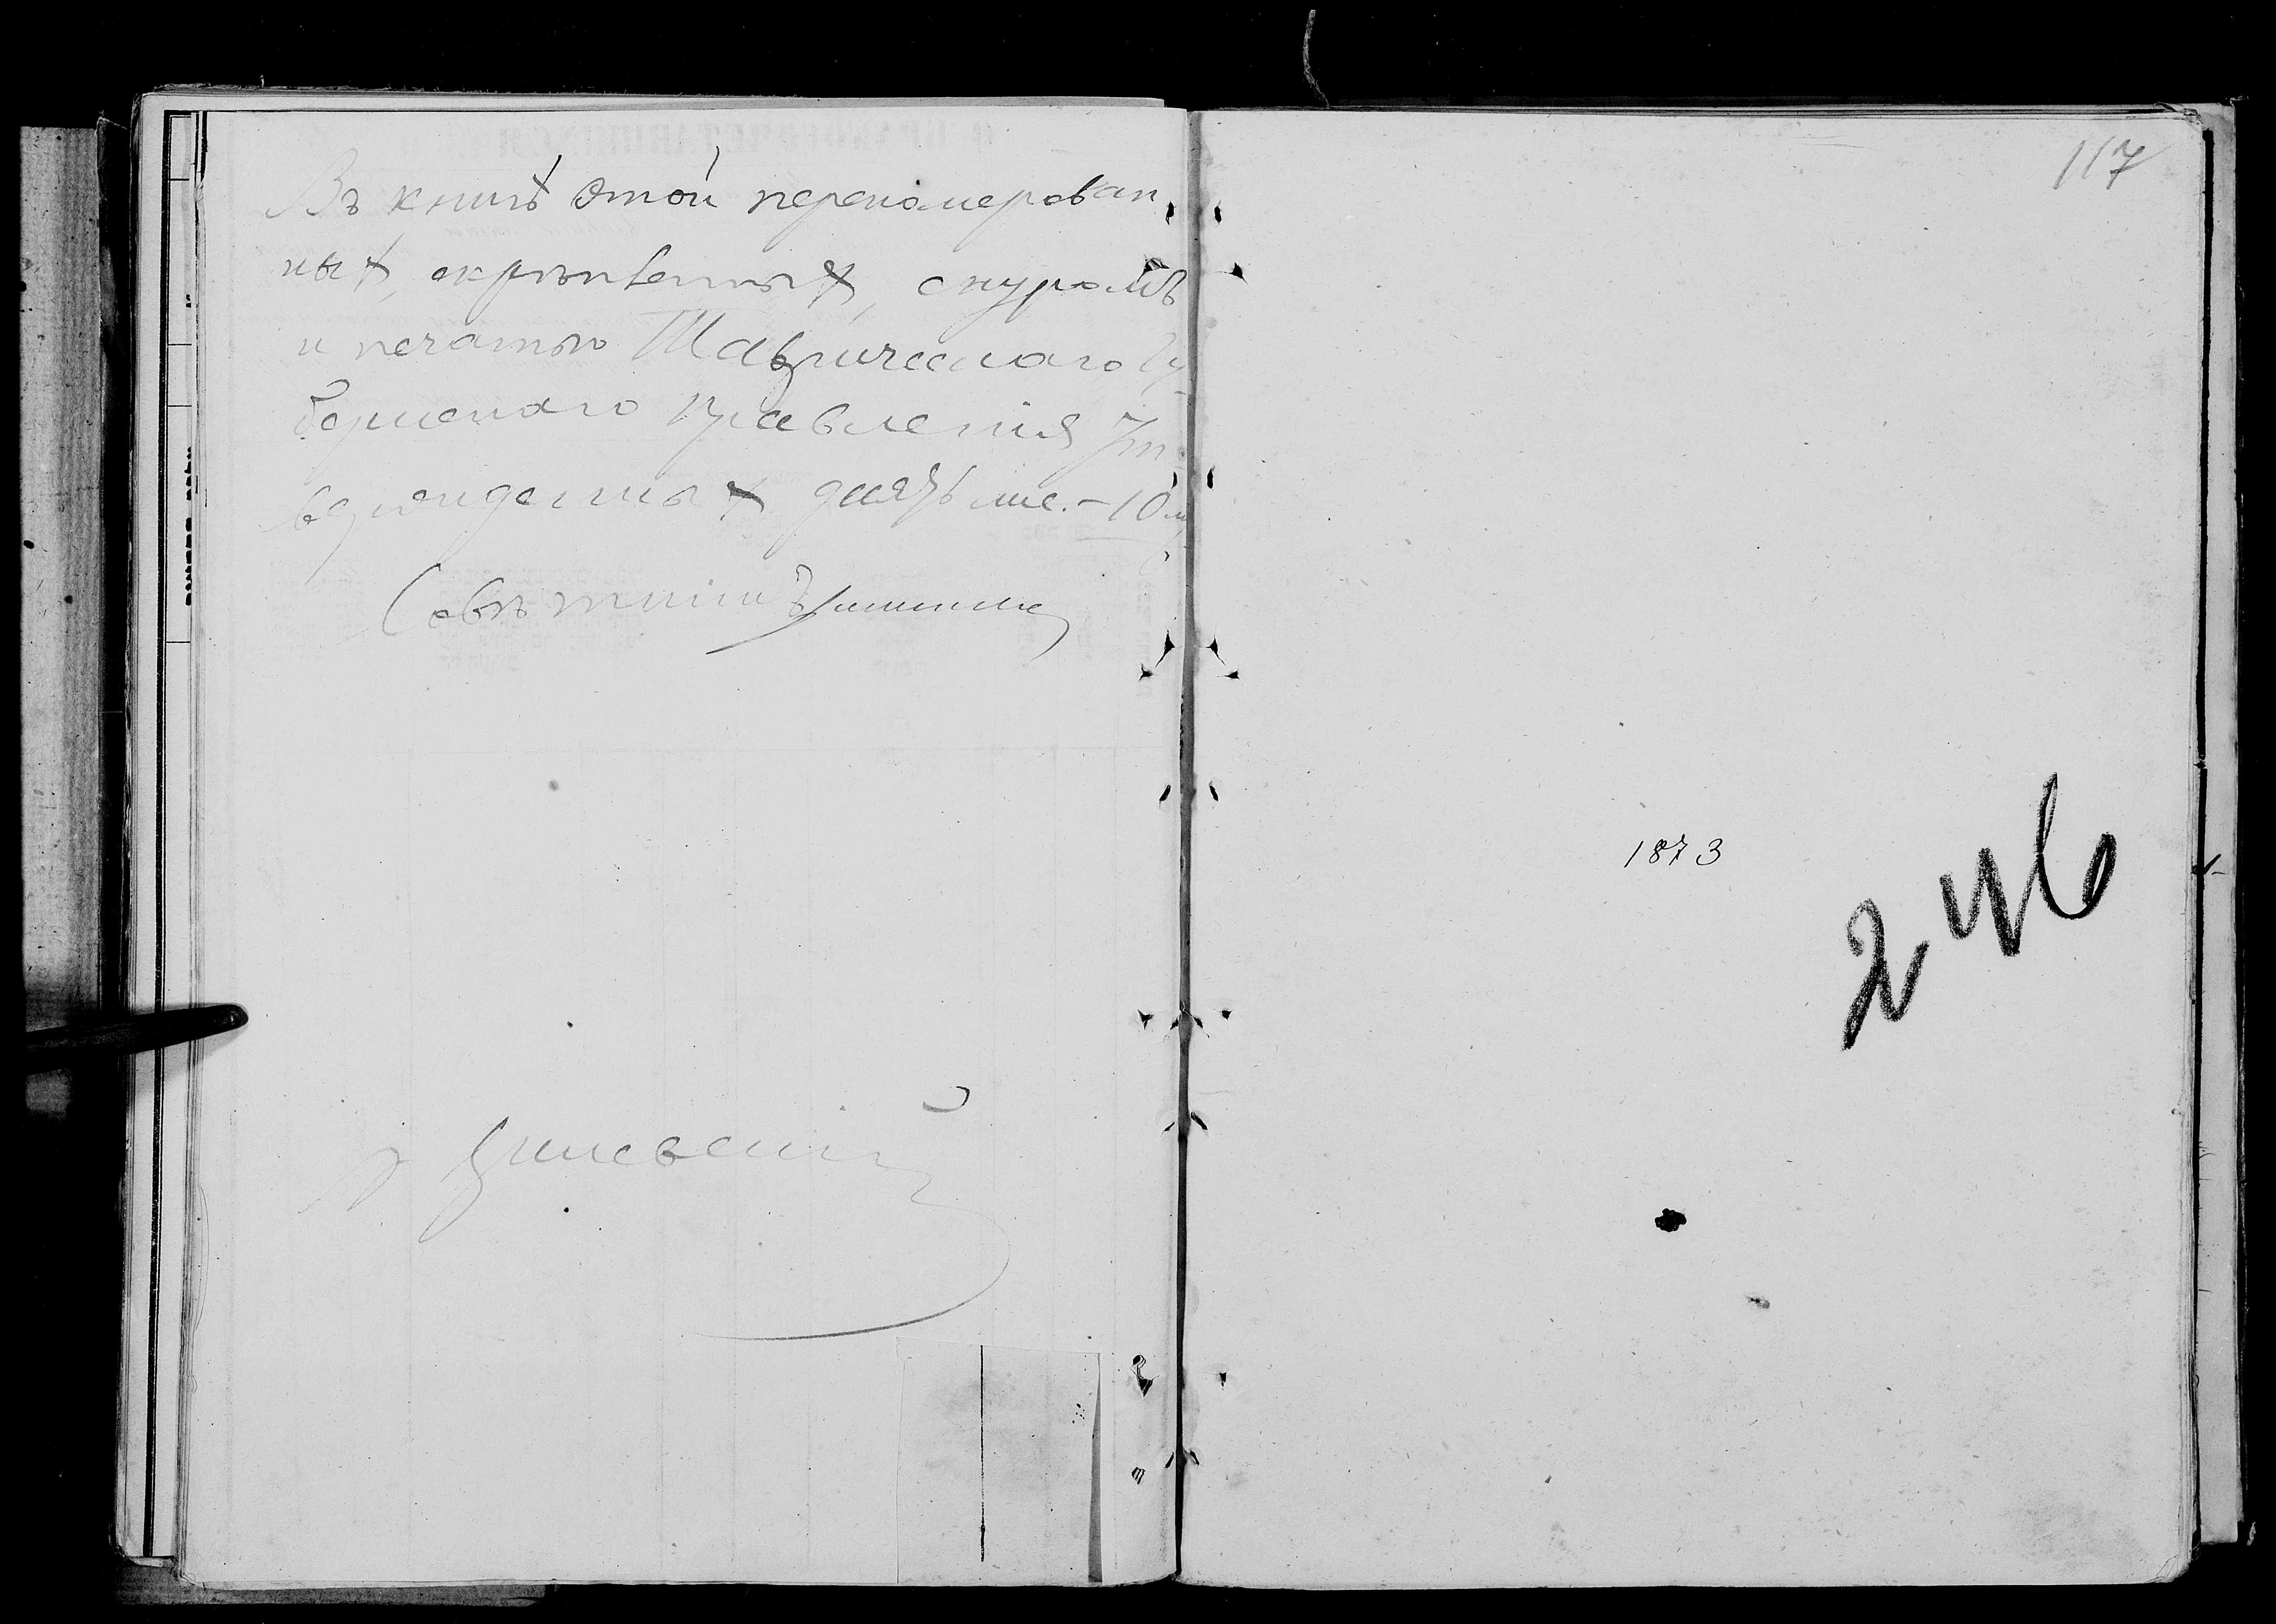 Въ книгѣ этой перенумерован
ныхъ, скрѣпленныхъ, снуромъ
и печатью Таврическаго Гу
бернскаго Правленія Ут
вержденныхъ десять лис. – 10 л
Совѣтникъ
117
1873
246